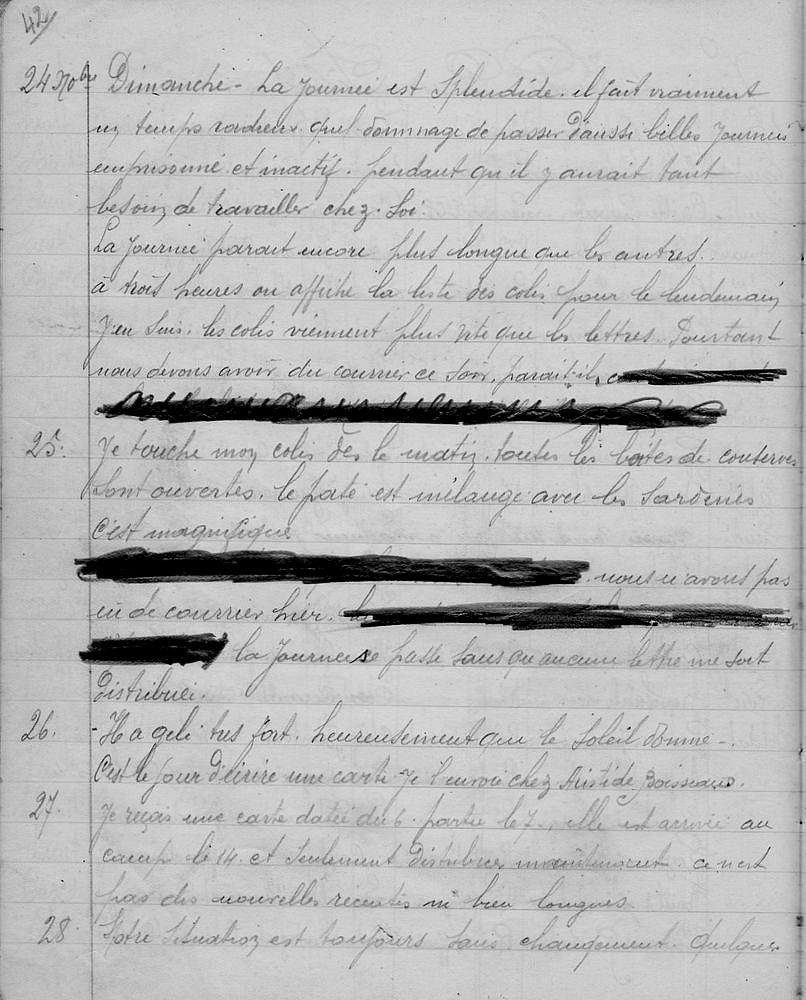 42/
24 Nobre Dimanche - La Journée est Splendide. il fait vraiment
un temps radieux quel dommage de passer d'aussi billes Journeis
emprisonné et inactif. pendant qu'il y aurait tant
besoin de travailler chez Soi.
La Journeé parait encore plus longue que les autres..
à trois heures on affiche la liste des colis pour le lendemain
J'en Suis. les colis viennent plus vite que les lettres. Pourtant
nous devons avoir du courrier ce Soir. parait-il.
25. Je touche mon colis dès le matin. toutes les boites de conserves
Sont ouvertes. le paté est mélangé avec les Sardines
C'est magnifique
nous n'avons pas
eu de courrier hier.
la Journeé se passe Sans qu'aucune lettre me soit
distribuée.
26. - Il a gelé très fort. heureusement que le Soleil donne -.
C'est le jour d'écrire une carte Je l'envoie chez Aristide Boisseau.
27. Je reçois une carte datée du 6. partie le 7., elle est arrivée au
camp le 14. et Seulement distribuée maintenant. ce n'est
pas des nouvelles récentes ni bien longues.
28 Notre Situation est toujours Sans changement. Quelques